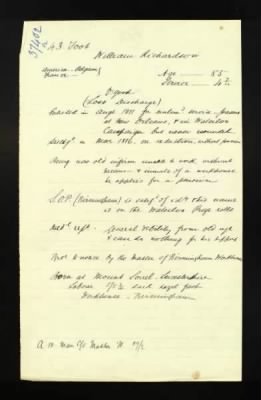 37402
43. Foot
William Richardson
America - Belgium
France
Age — 85
Service — 4
(Lost Discharge)
Enlisted in Augt 1811 for unlimd service, present
at New Orleans, & in Waterloo
Campaign but never wounded
Dischgd in Mar 1816. on reduction, without pension
Being now old infirm unable to work without
means - & inmate of a workhouse
he applies for a pension
S.O.P (Birmingham) is satisfd of id & this name
is on the Waterloo Prize rolls
Medl rept. General debility from old age
& can do nothing for his support
by the Master of Birmingham Workhouse
Born at Mount Sorrel Leicestershire
Labourer
Workhouse - Birmingham